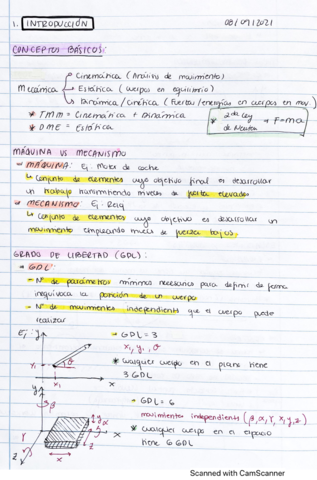 1. INTRODUCCIÓN 08/09/2021
CONCEPTOS BÁSICOS:
Cinemática (Análisis de movimiento)
Mecánica Estática (cuerpos en equilibrio)
Dinámica/Cinética (Fuerzas/energías en cuerpos en mov.)
* TMM = Cinemática + Dinámica
* DME = Estática
* 2ª Ley de Newton → F=m·a
MÁQUINA VS MECANISMO
MÁQUINA: Ej. Motor de coche
Conjunto de elementos cuyo objetivo final es desarrollar
un trabajo transmitiendo niveles de fuerza elevados
MECANISMO Ej. Reloj
Conjunto de elementos cuyo objetivo es desarrollar un
movimiento empleando niveles de fuerza bajos.
GRADO DE LIBERTAD (GDL):
GDL:
- Nº de parámetros mínimos necesarios para definir de forma
inequívoca la posición de un cuerpo
- Nº de movimientos independientes que el cuerpo puede
realizar
Ej: y GDL = 3
x₁, y₁, θ
y₁ θ * cualquier cuerpo en el plano tiene
3 GDL
x₁ x
y
β GDL = 6
movimientos independientes (β, α, γ, x, y, z)
α y
γ x * cualquier cuerpo en el espacio
z tiene 6 GDL
z x
Scanned with CamScanner